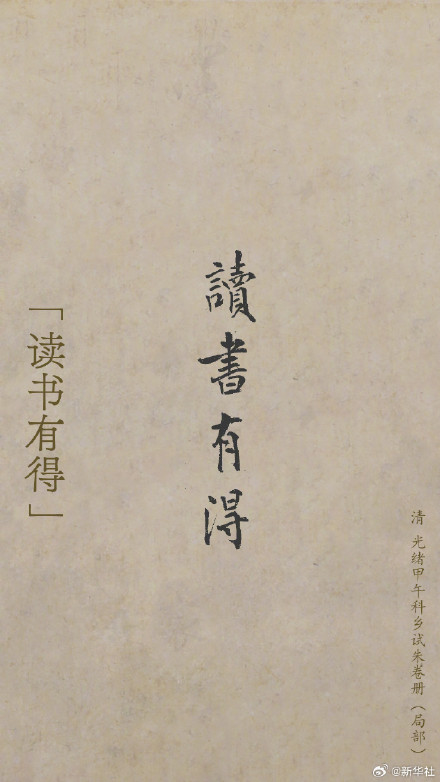 讀書有得
「读书有得」
清 光绪甲午科乡试朱卷册（局部）
@新华社